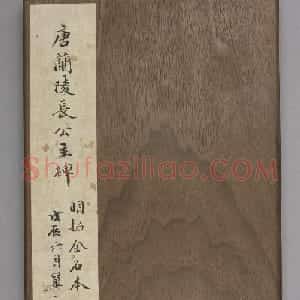 唐蘭陵長公主碑
明拓全石本
戊辰六月
Shufaziliao.com